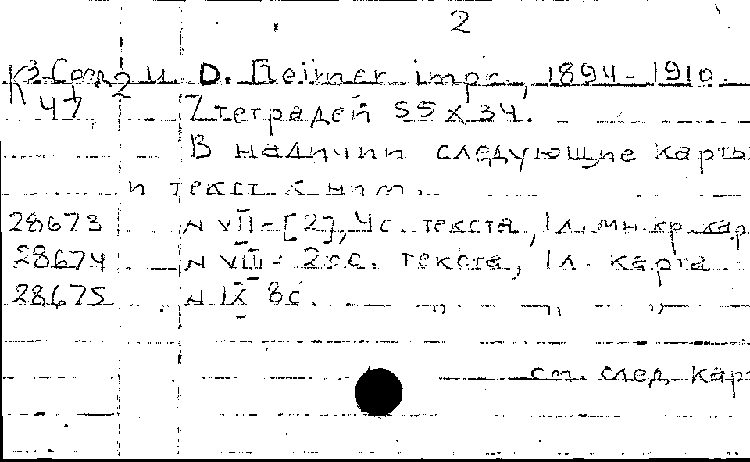 2
К 3 Сред 2 и. D. Reimer impr., 1894-1910.
47 7 тетрадей 55 x 34.
В наличии следующие карты
и текст к ним.
28673 N VII - [2], 4с. текста, 1л. мн. кр. кар
28674 N VIII - 2сс. текста, 1л. карта
28675 N IX 8с. — " — " — "
см. след. карт